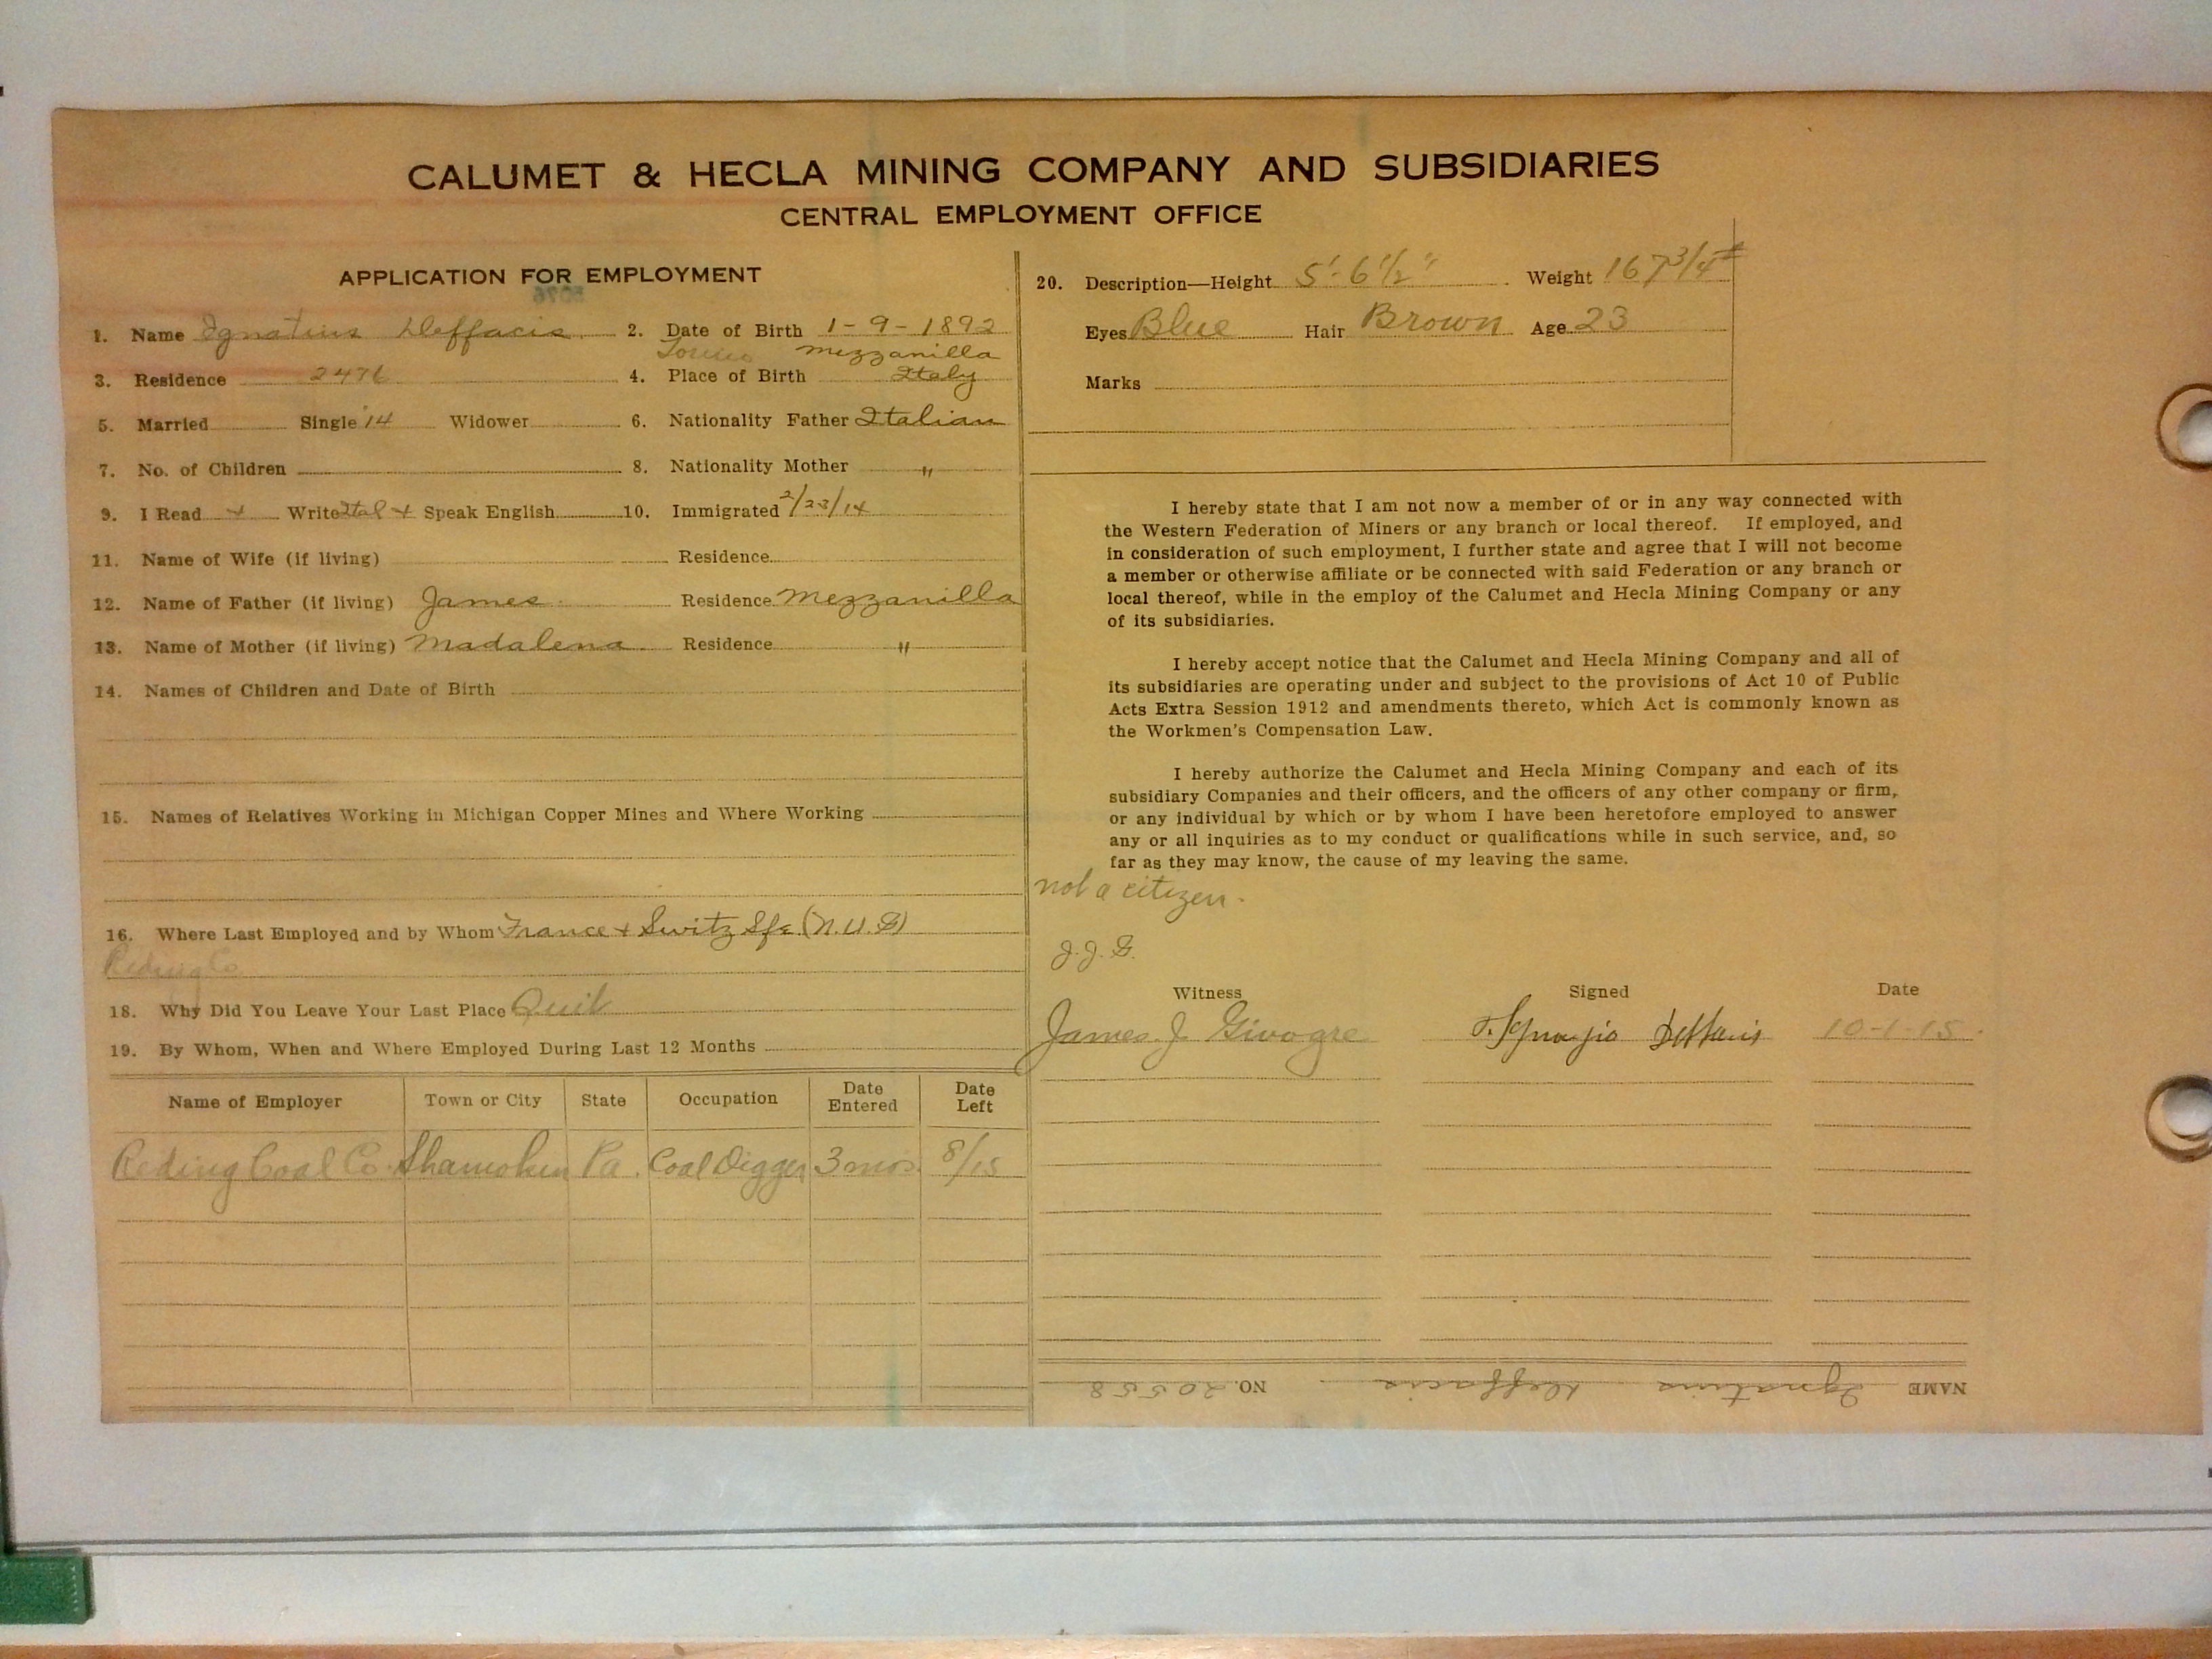 CALUMET & HECLA MINING COMPANY AND SUBSIDIARIES
CENTRAL EMPLOYMENT OFFICE
APPLICATION FOR EMPLOYMENT
1. Name Ignatius Deffacis 2. Date of Birth 1-9-1892
Torino Mezzanilla
3. Residence 2476 4. Place of Birth Italy
5. Married Single '14 Widower 6. Nationality Father Italian
7. No. of Children 8. Nationality Mother "
9. I Read + Write Ital + Speak English 10. Immigrated 2/23/14
11. Name of Wife (if living) Residence
12. Name of Father (if living) James Residence Mezzanilla
13. Name of Mother (if living) Madalena Residence "
14. Names of Children and Date of Birth
15. Names of Relatives Working in Michigan Copper Mines and Where Working
16. Where Last Employed and by Whom France + Switz Sfc (N.U.G)
Reding Co
18. Why Did You Leave Your Last Place Quit
19. By Whom, When and Where Employed During Last 12 Months
Name of Employer Town or City State Occupation Date Entered Date Left
Reding Coal Co. Shamokin Pa. Coal Digger 3 mos. 8/15
20. Description—Height 5'-6 1/2" Weight 167 3/4 #
Eyes Blue Hair Brown Age 23
Marks
I hereby state that I am not now a member of or in any way connected with
the Western Federation of Miners or any branch or local thereof. If employed, and
in consideration of such employment, I further state and agree that I will not become
a member or otherwise affiliate or be connected with said Federation or any branch or
local thereof, while in the employ of the Calumet and Hecla Mining Company or any
of its subsidiaries.
I hereby accept notice that the Calumet and Hecla Mining Company and all of
its subsidiaries are operating under and subject to the provisions of Act 10 of Public
Acts Extra Session 1912 and amendments thereto, which Act is commonly known as
the Workmen's Compensation Law.
I hereby authorize the Calumet and Hecla Mining Company and each of its
subsidiary Companies and their officers, and the officers of any other company or firm,
or any individual by which or by whom I have been heretofore employed to answer
any or all inquiries as to my conduct or qualifications while in such service, and, so
far as they may know, the cause of my leaving the same.
not a citizen.
J.J.G.
Witness Signed Date
James J Givogre Ignazio Deffacis 10-1-15.
NAME Ignatius Deffacis NO. 20558